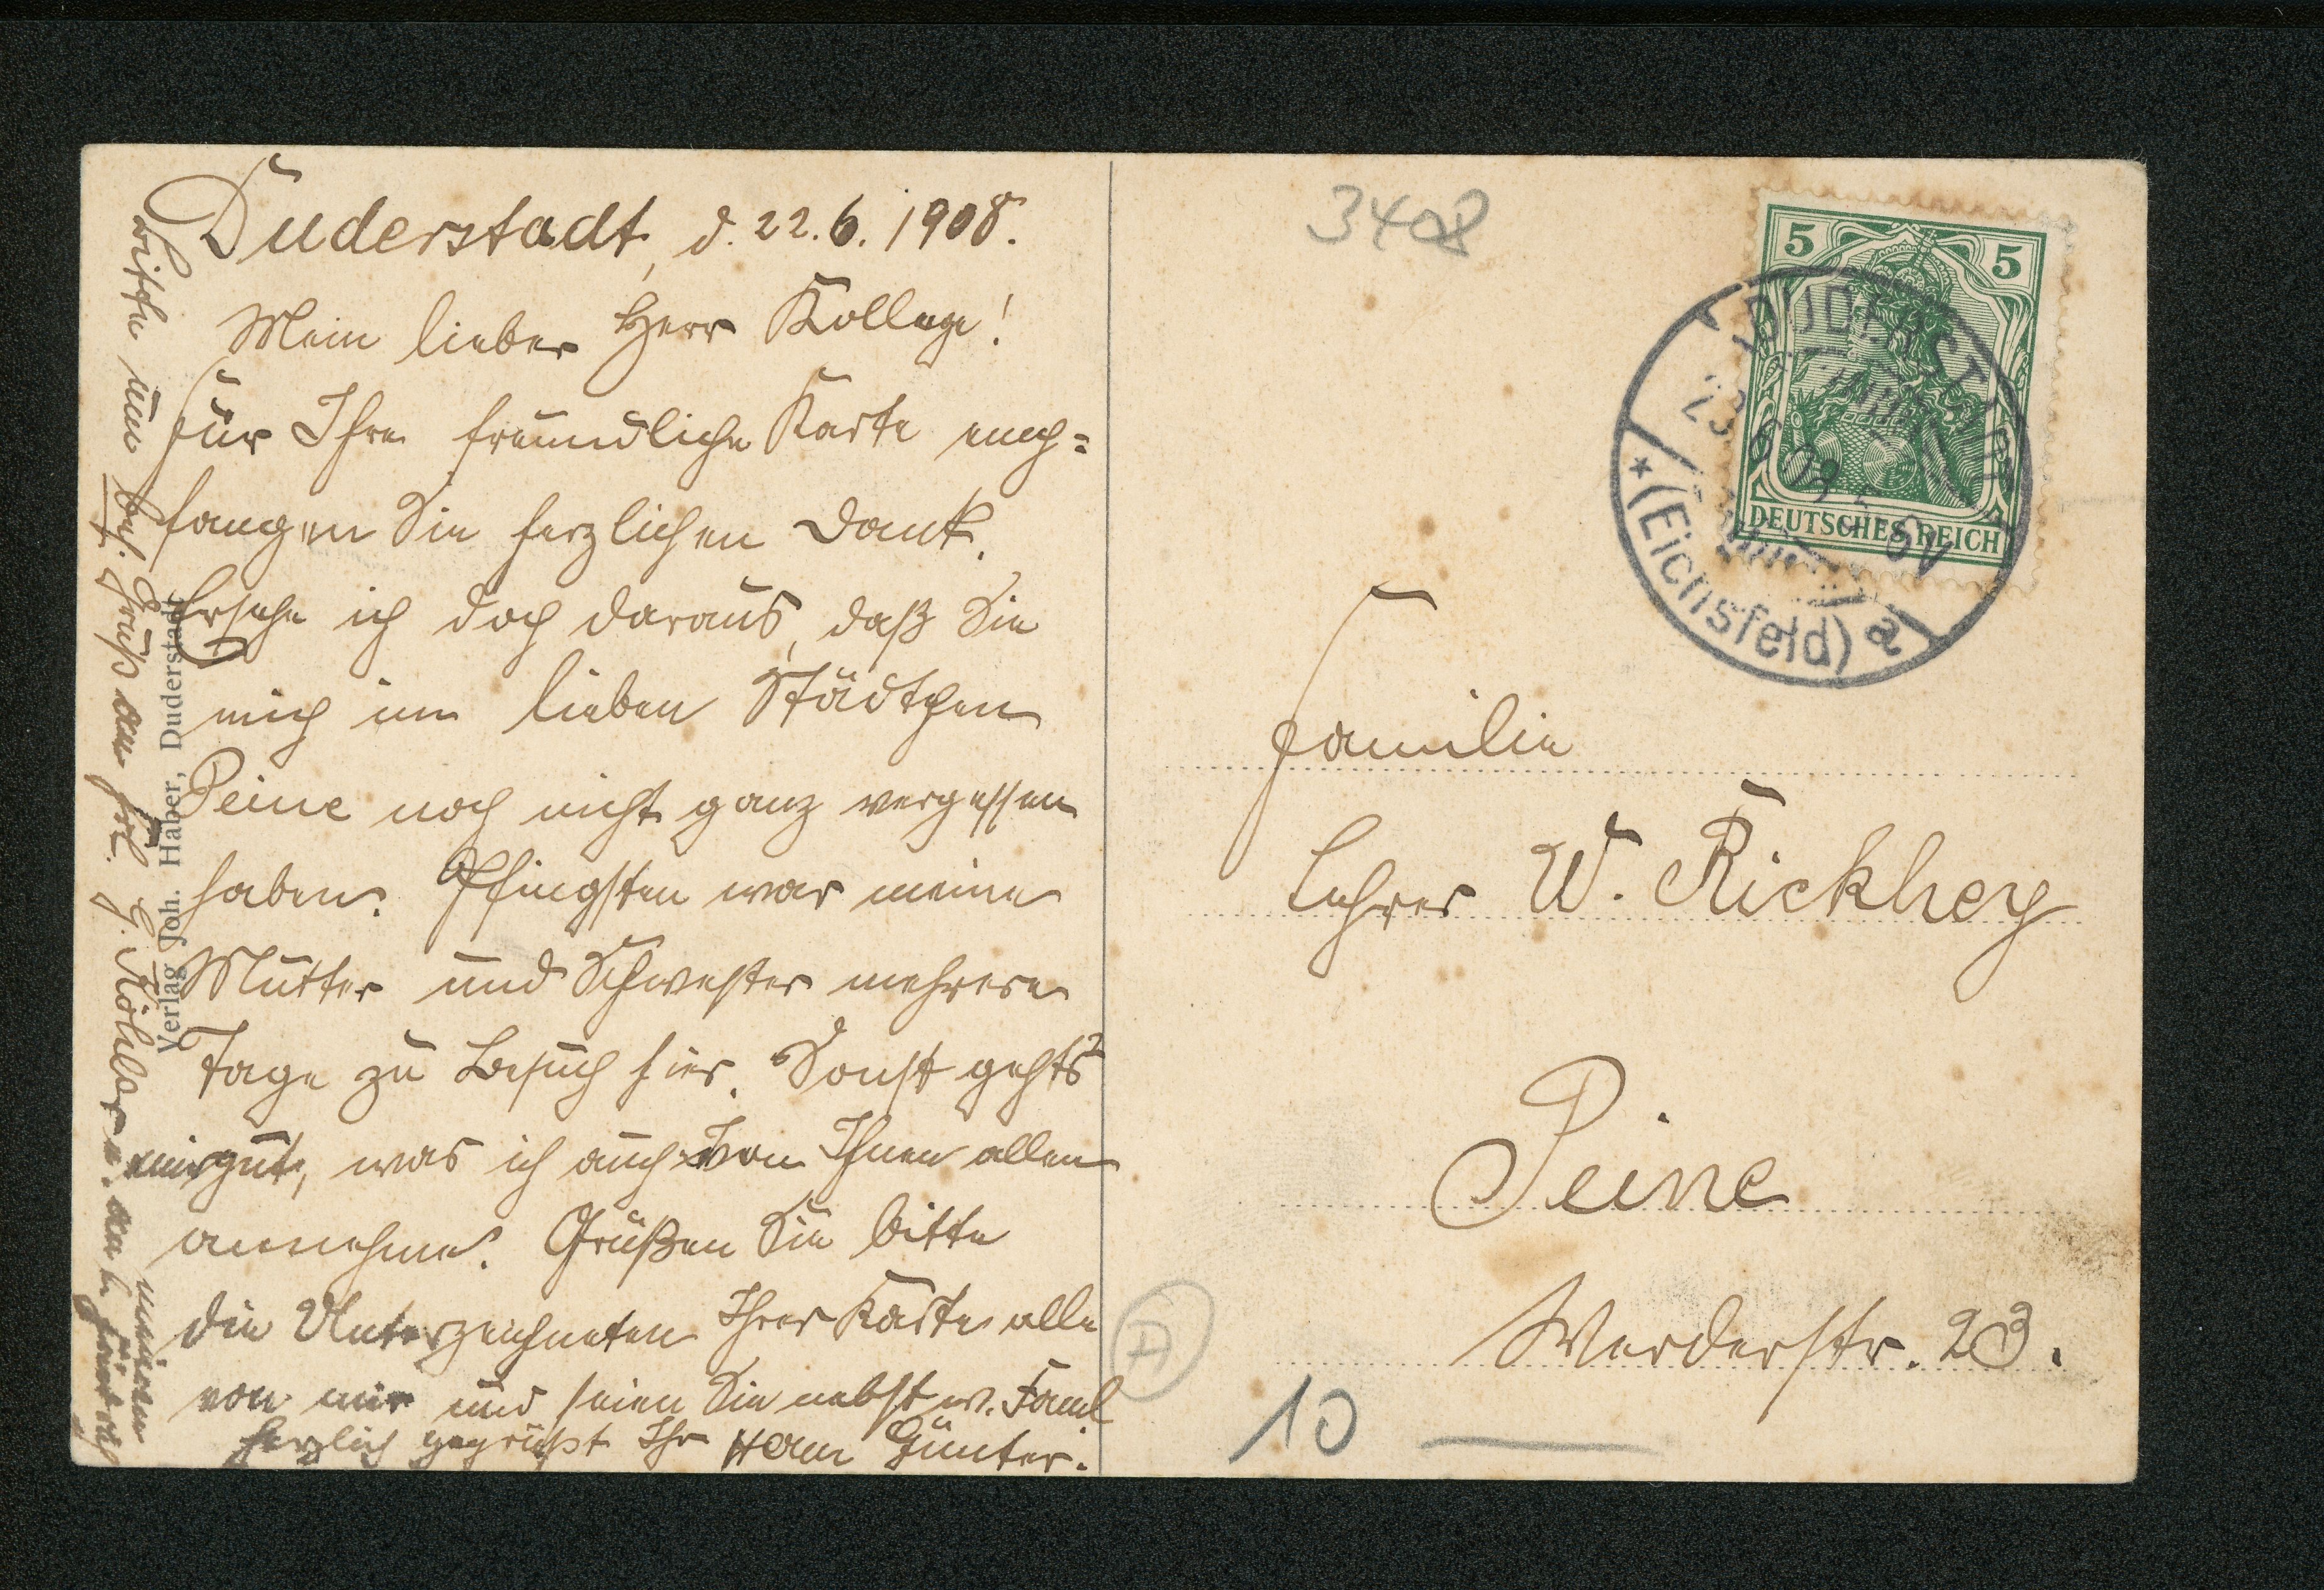 Duderstadt, d. 22.6. 1908.
Mein lieber Herr Kollege!
Für Ihre freundliche Karte emp=
fangen Sie herzlichen Dank.
Ersehe ich doch daraus, daß Sie
mich im lieben Städtchen
Peine noch nicht ganz vergessen
haben. Pfingsten war meine
Mutter und Schwester mehrere
Tage zu Besuch hier. Sonst gehts
mir gut, was ich auch von Ihnen allen
annehme. Grüßen Sie bitte
die Unterzeichneten Ihrer Karte alle
von mir und seien Sie nebst w. Faml
herzlich gegrüßt Ihr Herm Günter.
Bitte um bes. Gruß an Frl. G. Köhler u. an
meinen
Verlag Joh. Haber, Duderstadt
3408
5 5
DEUTSCHES REICH
DUDERSTADT
23.6.08
*(Eichsfeld) a
Familie
Lehrer W. Rickhey
Peine
Werderstr. 23.
10